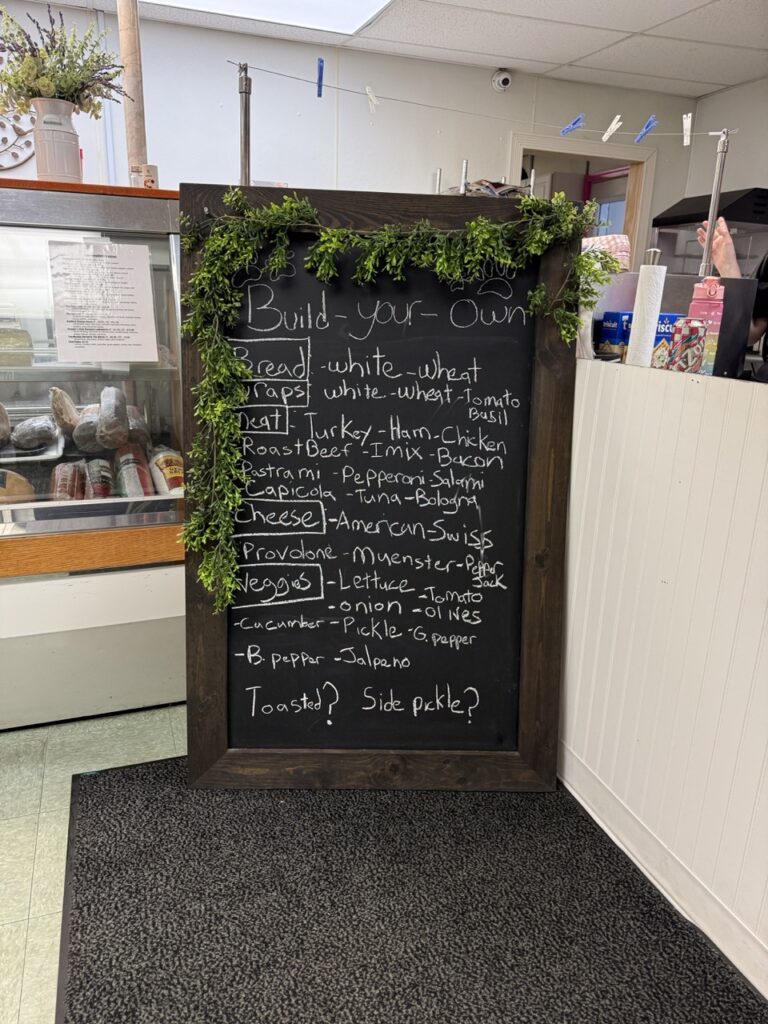 Build-your-Own
Bread -white -wheat
Wraps white -wheat -Tomato Basil
Meat - Turkey -Ham -Chicken
RoastBeef -Imix -Bacon
Pastrami -Pepperoni -Salami
Capicola -Tuna -Bologna
Cheese -American -Swiss
-Provolone -Muenster -Pepper Jack
Veggies -Lettuce -Tomato
-onion -Olives
-Cucumber -Pickle -G. pepper
-B. pepper -Jalpeno
Toasted? Side pickle?